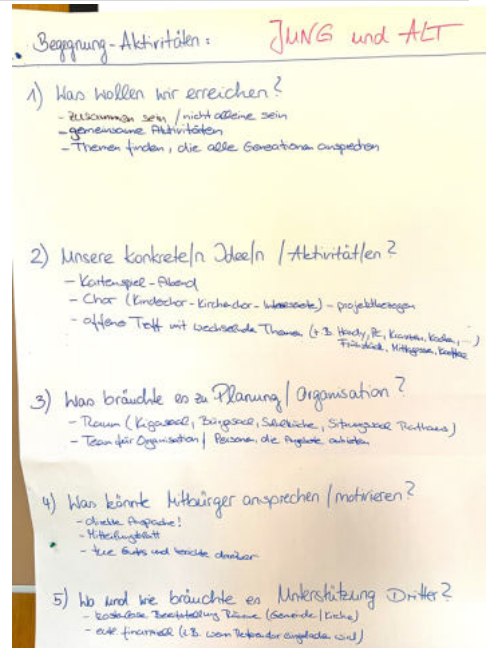 Begegnung-Aktivitäten: JUNG und ALT
1) Was wollen wir erreichen?
- zusammen sein / nicht alleine sein
- gemeinsame Aktivitäten
- Themen finden, die alle Generationen ansprechen
2) Unsere konkrete/n Idee/n / Aktivität/en?
- Kartenspiel-Abend
- Chor (Kinderchor-Kirchenchor-Interessierte) - projektbezogen
- offene Treff mit wechselnde Themen (z.B. Handy, PC, Kochen, ...)
Frühstück, Mittagessen, Kaffee
3) Was bräuchte es zu Planung / Organisation?
- Raum (Kigasaal, Bürgersaal, Schulküche, Sitzungssaal Rathaus)
- Team für Organisation / Personen, die Angebote anbieten
4) Was könnte Mitbürger ansprechen / motivieren?
- direkte Ansprache!
- Mitteilungsblatt
- tue Gutes und berichte darüber
5) Wo und wie bräuchte es Unterstützung Dritter?
- kostenlose Bereitstellung Räume (Gemeinde / Kirche)
- evtl. finanziell (z.B. wenn eingeladen wird)